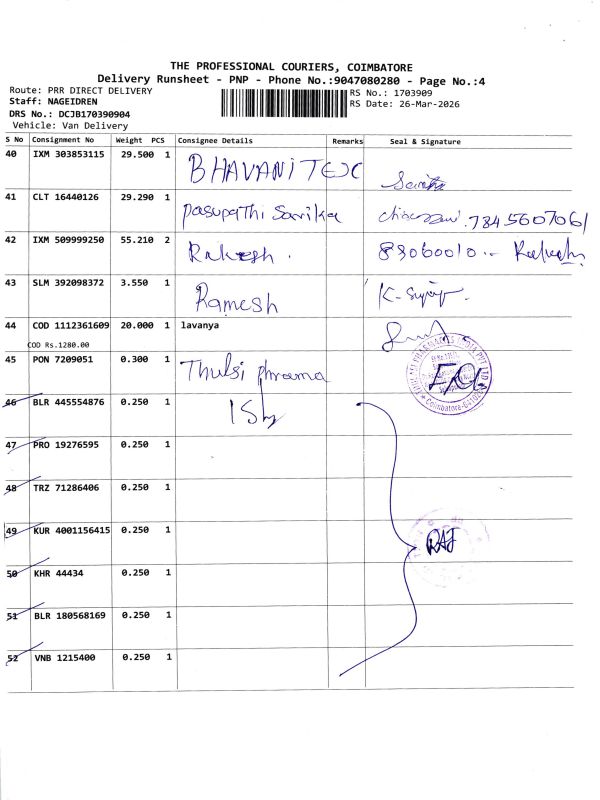 THE PROFESSIONAL COURIERS, COIMBATORE
Delivery Runsheet - PNP - Phone No.:9047080280 - Page No.:4
Route: PRR DIRECT DELIVERY
Staff: NAGEIDREN
DRS No.: DCJB170390904
Vehicle: Van Delivery
RS No.: 1703909
RS Date: 26-Mar-2026
S No Consignment No Weight PCS Consignee Details Remarks Seal & Signature
40 IXM 303853115 29.500 1 BHAVANI TEX
41 CLT 16440126 29.290 1 Pasupathi Sarika 7845607061
42 IXM 509999250 55.210 2 Rakesh. 89060010
43 SLM 392098372 3.550 1 Ramesh
44 COD 1112361609 20.000 1 lavanya
COD Rs.1280.00
45 PON 7209051 0.300 1 Thulsi phrama
46 BLR 445554876 0.250 1
47 PRO 19276595 0.250 1
48 TRZ 71286406 0.250 1
49 KUR 4001156415 0.250 1 RAJ
50 KHR 44434 0.250 1
51 BLR 180568169 0.250 1
52 VNB 1215400 0.250 1